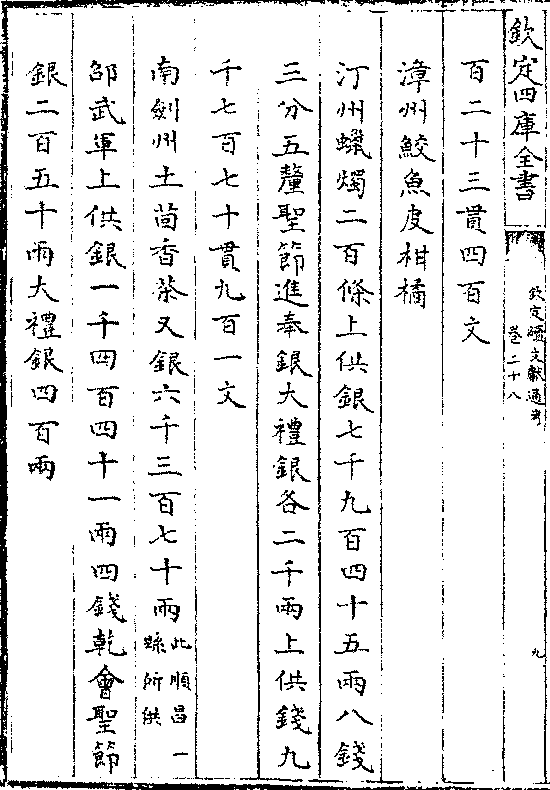 欽定四庫全書
欽定續文獻通考
卷二十八
九
百二十三貫四百文
漳州鮫魚皮柑橘
汀州蠟燭二百條上供銀七千九百四十五兩八錢
三分五釐聖節進奉銀大禮銀各二千兩上供錢九
千七百七十貫九百一文
南劍州土茴香茶又銀六千三百七十兩此順昌一縣所供
邵武軍上供銀一千四百四十一兩四錢乾會聖節
銀二百五十兩大禮銀四百兩